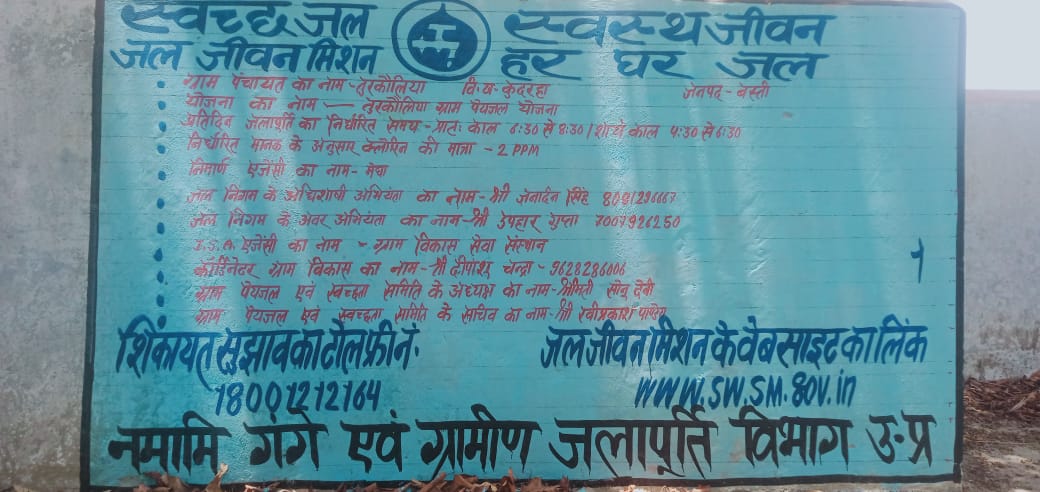 स्वच्छ जल स्वस्थ जीवन
जल जीवन मिशन हर घर जल
ग्राम पंचायत का नाम - तुरकौलिया वि.ख. कुदरहा जनपद - बस्ती
योजना का नाम — तुरकौलिया ग्राम पेयजल योजना
प्रतिदिन जलापूर्ति का निर्धारित समय - प्रातः काल 6:30 से 8:30 / शायं काल 4:30 से 6:30
निर्धारित मानक के अनुसार क्लोरिन की मात्रा - 2 PPM
निमार्ण एजेंसी का नाम - मेघा
जल निगम के अधिशाषी अभियंता का नाम - श्री जनार्दन सिंह
जल निगम के अवर अभियंता का नाम - श्री उपहार गुप्ता 7007926250
I.S.A. एजेंसी का नाम - ग्राम विकास सेवा संस्थान
कॉर्डिनेटर ग्राम विकास का नाम - श्री दीपांशु चन्द्रा - 9628286006
ग्राम पेयजल एवं स्वच्छता समिति के अध्यक्ष का नाम - श्रीमती सोनू देवी
ग्राम पेयजल एवं स्वच्छता समिति के सचिव का नाम - श्री रवीप्रकाश पाण्डेय
शिंकायत सुझाव का टोल फ्री नं. जल जीवन मिशन के वेबसाइट का लिंक
18001212164 WWW.SW.SM.gov.in
नमामि गंगे एवं ग्रामीण जलापूर्ति विभाग उ-प्र